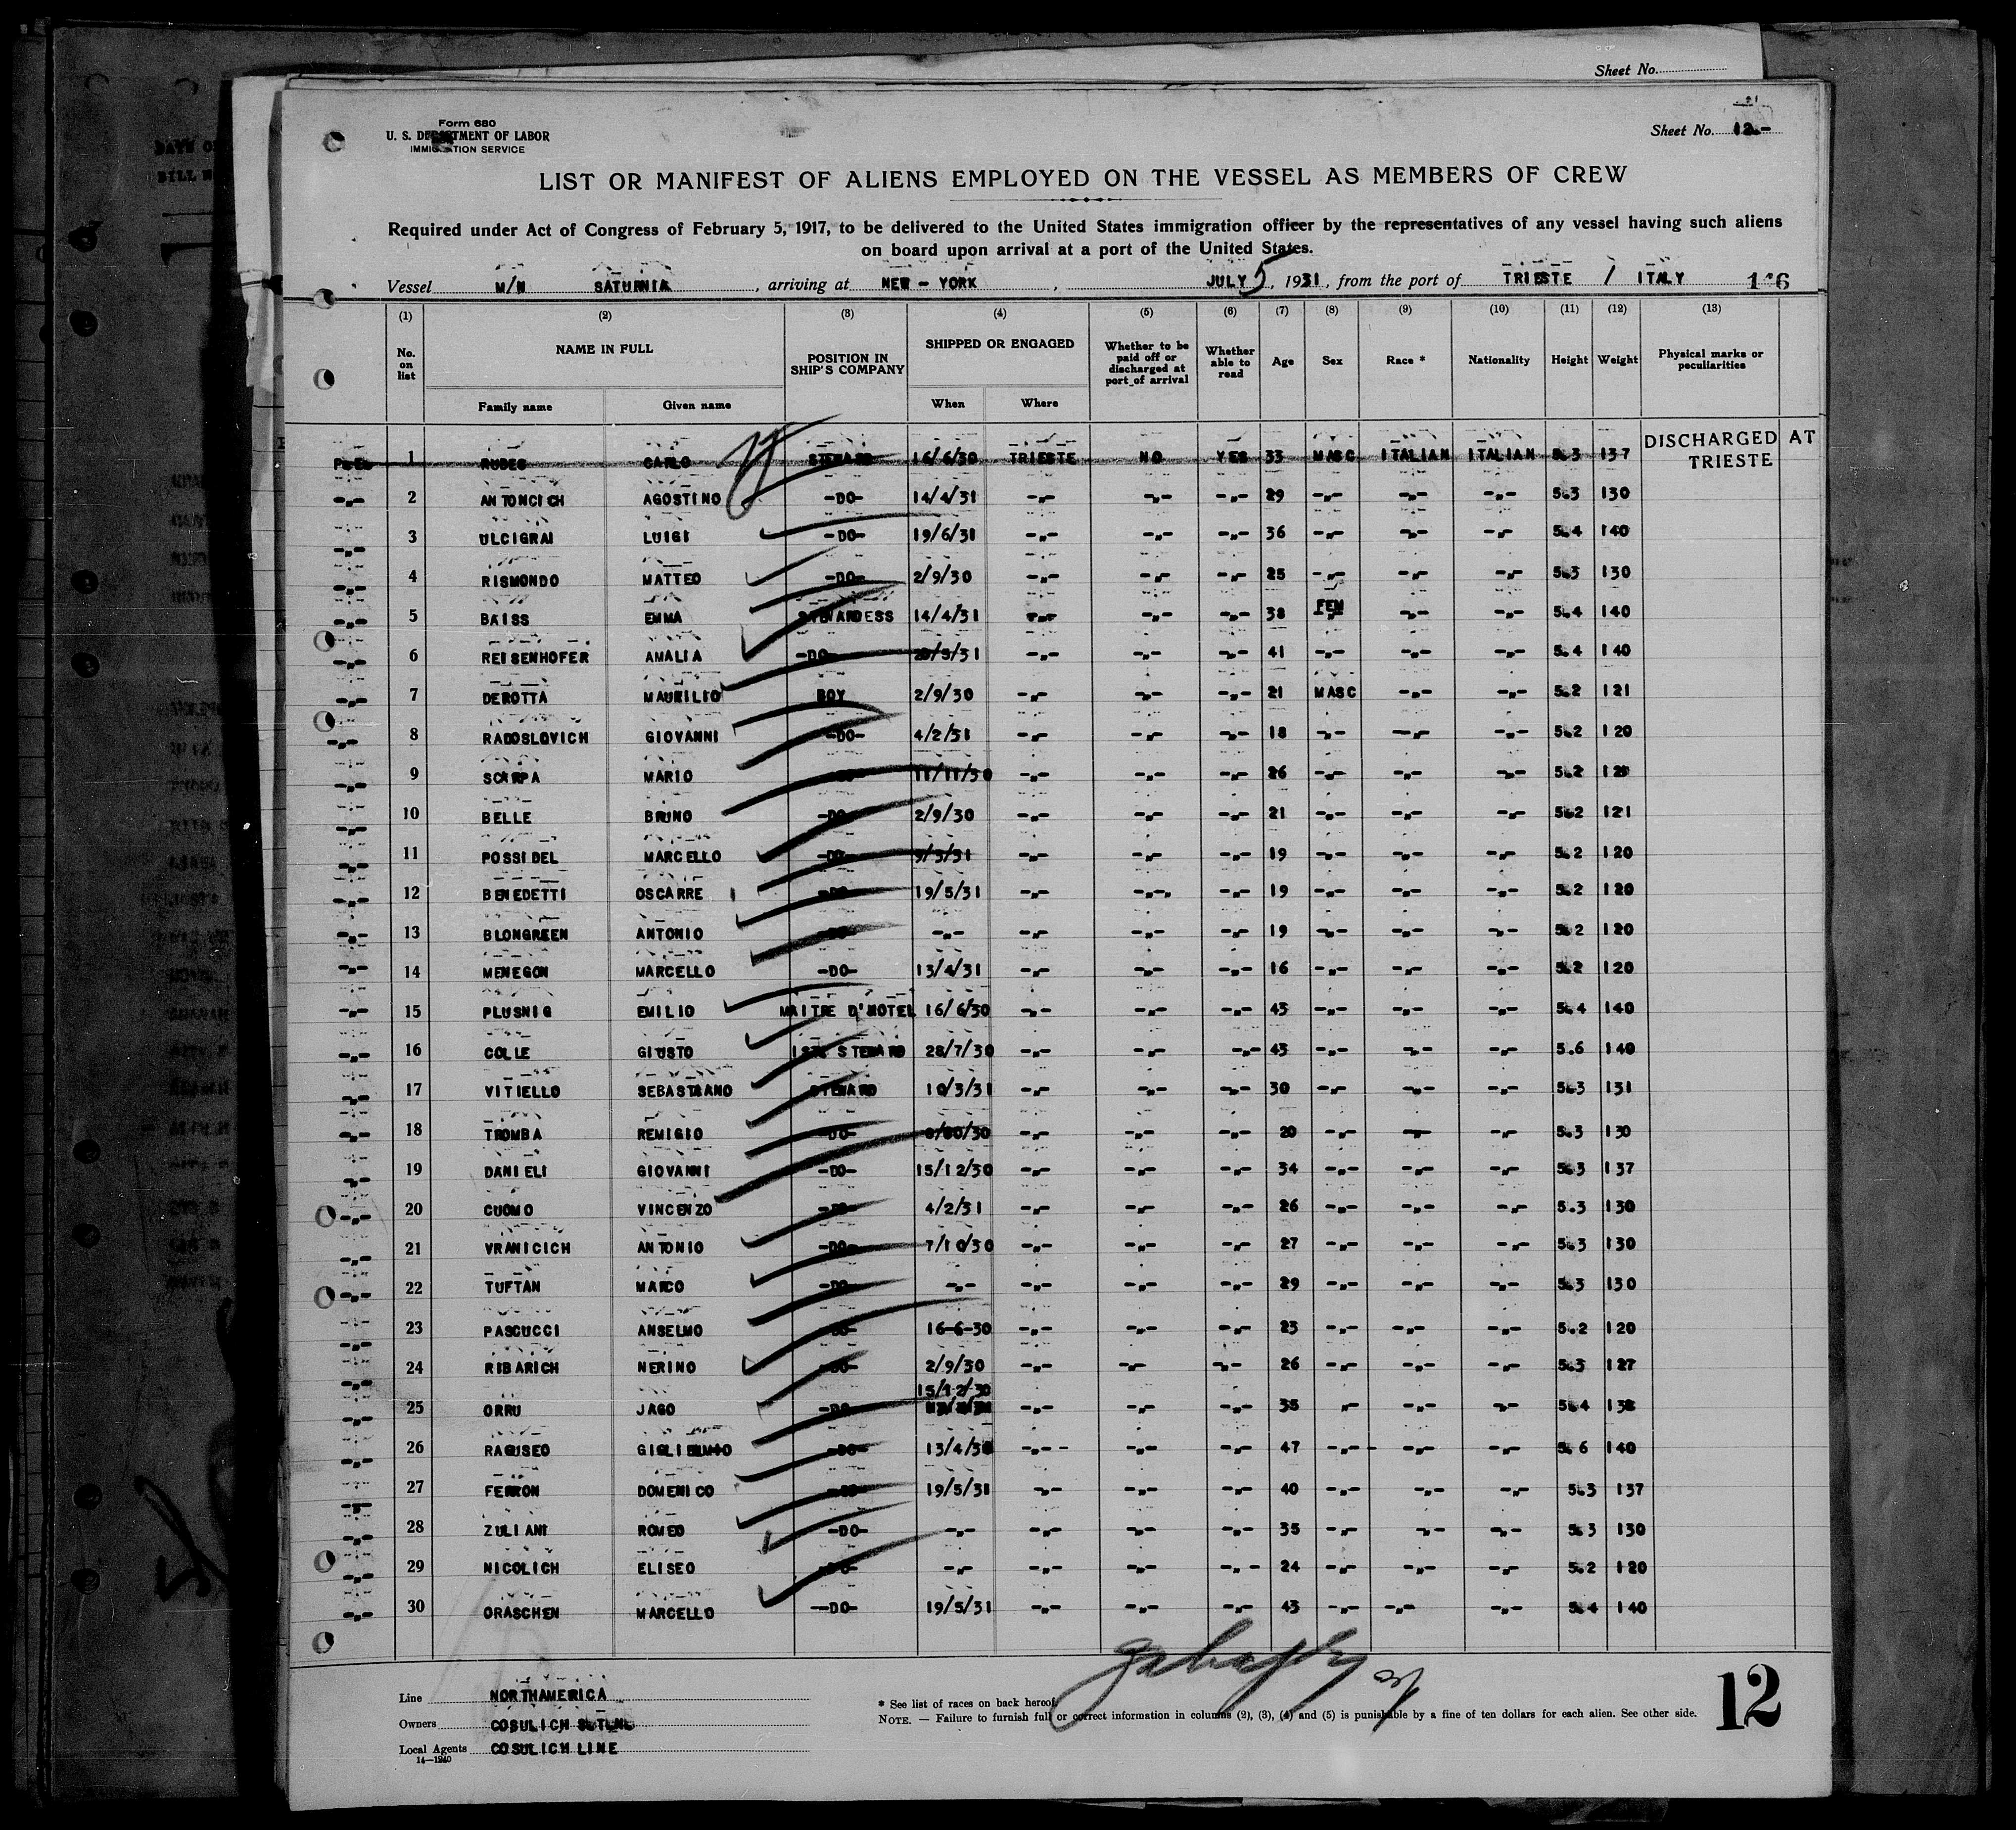 Sheet No.
Form 680
U. S. DEPARTMENT OF LABOR
IMMIGRATION SERVICE
Sheet No. 12.-
LIST OR MANIFEST OF ALIENS EMPLOYED ON THE VESSEL AS MEMBERS OF CREW
Required under Act of Congress of February 5, 1917, to be delivered to the United States immigration officer by the representatives of any vessel having such aliens
on board upon arrival at a port of the United States.
Vessel M/N SATURNIA, arriving at NEW - YORK, JULY 5, 1931, from the port of TRIESTE / ITALY 146
(1) (2) (3) (4) (5) (6) (7) (8) (9) (10) (11) (12) (13)
No. on list NAME IN FULL POSITION IN SHIP'S COMPANY SHIPPED OR ENGAGED Whether to be paid off or discharged at port of arrival Whether able to read Age Sex Race * Nationality Height Weight Physical marks or peculiarities
Family name Given name When Where
1 RUDES CARLO STEWARD 16/6/30 TRIESTE NO YES 33 MASC ITALIAN ITALIAN 5.3 137 DISCHARGED AT TRIESTE
-"- 2 ANTONCICH AGOSTINO -DO- 14/4/31 -"- -"- -"- 29 -"- -"- -"- 5.3 130
-"- 3 ULCIGRAI LUIGI -DO- 19/6/31 -"- -"- -"- 36 -"- -"- -"- 5.4 140
-"- 4 RISMONDO MATTEO -DO- 2/9/30 -"- -"- -"- 25 -"- -"- -"- 5.3 130
-"- 5 BAISS EMMA STEWARDESS 14/4/31 -"- -"- -"- 38 FEM -"- -"- 5.4 140
-"- 6 REISENHOFER AMALIA -DO- -"- -"- -"- 41 -"- -"- -"- 5.4 140
-"- 7 DEROTTA MAURILIO BOY 2/9/30 -"- -"- -"- 21 MASC -"- -"- 5.2 121
-"- 8 RADOSLOVICH GIOVANNI -DO- 4/2/31 -"- -"- -"- 18 -"- -"- -"- 5.2 120
-"- 9 SCARPA MARIO -DO- 11/11/30 -"- -"- -"- 26 -"- -"- -"- 5.2
-"- 10 BELLE BRUNO -DO- 2/9/30 -"- -"- -"- 21 -"- -"- -"- 5.2 121
-"- 11 POSSIDEL MARCELLO -DO- 9/3/31 -"- -"- -"- 19 -"- -"- -"- 5.2 120
-"- 12 BENEDETTI OSCARRE -DO- 19/5/31 -"- -"- -"- 19 -"- -"- -"- 5.2 120
-"- 13 BLONGREEN ANTONIO -DO- -"- -"- -"- -"- 19 -"- -"- -"- 5.2 120
-"- 14 MENEGON MARCELLO -DO- 13/4/31 -"- -"- -"- 16 -"- -"- -"- 5.2 120
-"- 15 PLUSNIG EMILIO MAITRE D'HOTEL 16/6/30 -"- -"- -"- 43 -"- -"- -"- 5.4 140
-"- 16 COLLE GIUSTO IST STEWARD 28/7/30 -"- -"- -"- 43 -"- -"- -"- 5.6 140
-"- 17 VITIELLO SEBASTIANO STEWARD 10/3/31 -"- -"- -"- 30 -"- -"- -"- 5.3 131
-"- 18 TROMBA REMIGIO -DO- -"- -"- -"- 20 -"- -"- -"- 5.3 130
-"- 19 DANIELI GIOVANNI -DO- 15/12/30 -"- -"- -"- 34 -"- -"- -"- 5.3 137
-"- 20 CUOMO VINCENZO -DO- 4/2/31 -"- -"- -"- 26 -"- -"- -"- 5.3 130
-"- 21 VRANICICH ANTONIO -DO- 7/10/30 -"- -"- -"- 27 -"- -"- -"- 5.3 130
-"- 22 TUFTAN MARCO -DO- -"- -"- -"- -"- 29 -"- -"- -"- 5.3 130
-"- 23 PASCUCCI ANSELMO -DO- 16-6-30 -"- -"- -"- 23 -"- -"- -"- 5.2 120
-"- 24 RIBARICH NERINO -DO- 2/9/30 -"- -"- -"- 26 -"- -"- -"- 5.3 127
-"- 25 ORRU JAGO -DO- 15/12/30 -"- -"- -"- 35 -"- -"- -"- 5.4 138
-"- 26 RAGUSEO GIGLIELMO -DO- 13/4/30 -"- -"- -"- 47 -"- -"- -"- 5.6 140
-"- 27 FERRON DOMENICO -DO- 19/5/31 -"- -"- -"- 40 -"- -"- -"- 5.3 137
-"- 28 ZULIANI ROMEO -DO- -"- -"- -"- -"- 35 -"- -"- -"- 5.3 130
-"- 29 NICOLICH ELISEO -DO- -"- -"- -"- -"- 24 -"- -"- -"- 5.2 120
-"- 30 ORASCHEN MARCELLO -DO- 19/5/31 -"- -"- -"- 43 -"- -"- -"- 5.4 140
Line NORTHAMERICA
Owners COSULICH
Local Agents COSULICH LINE
14—1240
* See list of races on back hereof.
NOTE. — Failure to furnish full or correct information in columns (2), (3), (4) and (5) is punishable by a fine of ten dollars for each alien. See other side.
12